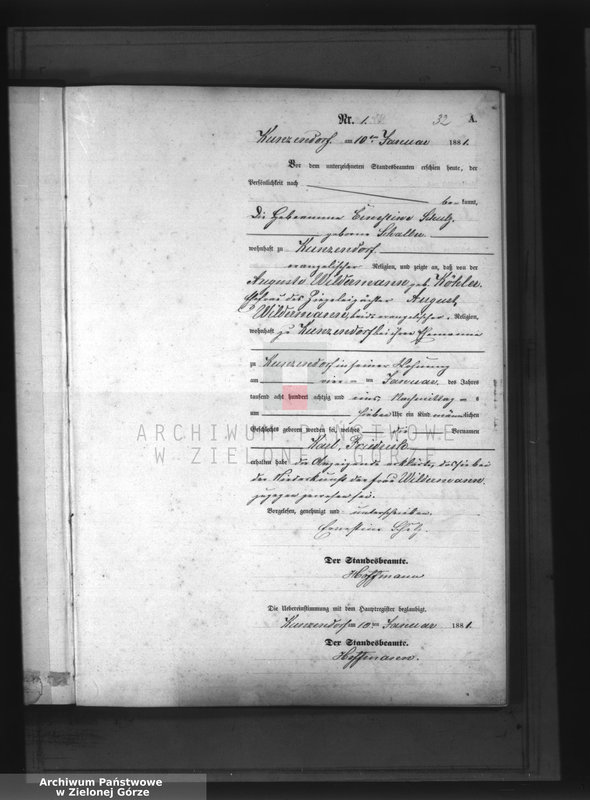 Nr. 1. 32 A.
Kunzendorf am 10ten Januar 1881.
Vor dem unterzeichneten Standesbeamten erschien heute, der
Persönlichkeit nach
be kannt,
die Hebeamme Ernestine Schulz
geborne Schalle
wohnhaft zu Kunzendorf
evangelischer Religion, und zeigte an, daß von der
Auguste Wildemann, geb. Köhler
Ehefrau des August
Wildemann, beide evangelischer Religion,
wohnhaft zu Kunzendorf bei ihrem Ehemanne
zu Kunzendorf in seiner Wohnung
am vier ten Januar des Jahres
tausend acht hundert achtzig und eins, Nachmittag s
um sieben Uhr ein Kind männlichen
Geschlechts geboren worden sei, welches die Vornamen
Karl, Friedrich
erhalten habe die Anzeigende erklärte, daß sie bei
der Niederkunft der Frau Wildemann
zugegen gewesen sei.
Vorgelesen, genehmigt und unterschrieben
Ernestine Schulz.
Der Standesbeamte.
Hoffmann
Die Uebereinstimmung mit dem Hauptregister beglaubigt.
Kunzendorf am 10ten Januar 1881.
Der Standesbeamte.
Hoffmann.
ARCHIWUM PAŃSTWOWE
W ZIELONEJ GÓRZE
Archiwum Państwowe
w Zielonej Górze